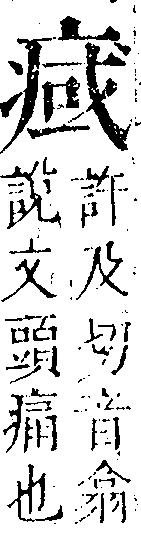 許及切音翕
說文頭痛也